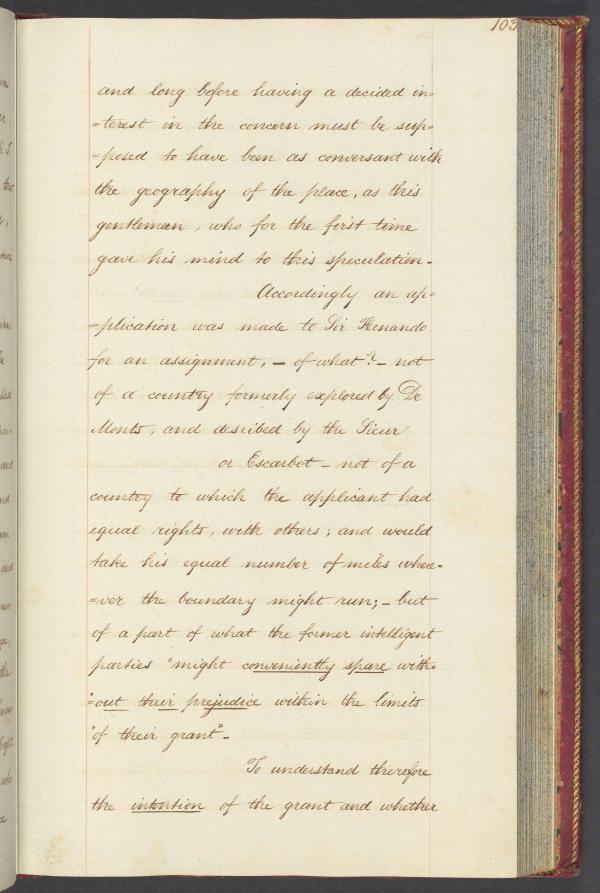 103
and long before having a decided in=
=terest in the concern must be sup=
=posed to have been as conversant with
the geography of the place, as this
gentleman, who for the first time
gave his mind to this speculation.
Accordingly an ap=
=plication was made to Sir Fernando
for an assignment, – of what? – not
of a country formerly explored by De
Monts, and desribed by the Sieur
or Escarbot – not of a
country to which the applicant had
equal rights, with others; and would
take his equal number of miles whee=
=ver the boundary might run; – but
of a part of what the former intelligent
parties "might conveniently spare with=
"=out their prejudice within the limits
"of their grant" –
To understand therefore
the intention of the grant and whether